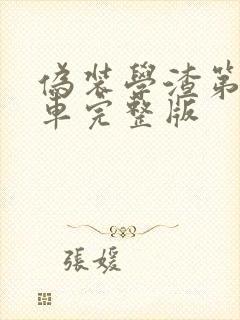 偽裝學渣第
車完整版
張媛